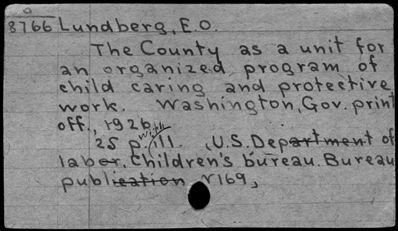 a
8766 Lundberg, E.O.
The County as a unit for
an organized program of
child caring and protective
work. Washington, Gov. print
off., 1926.
25 p. with ill. (U.S. Department of
labor. Children's bureau. Bureau
publication #169)